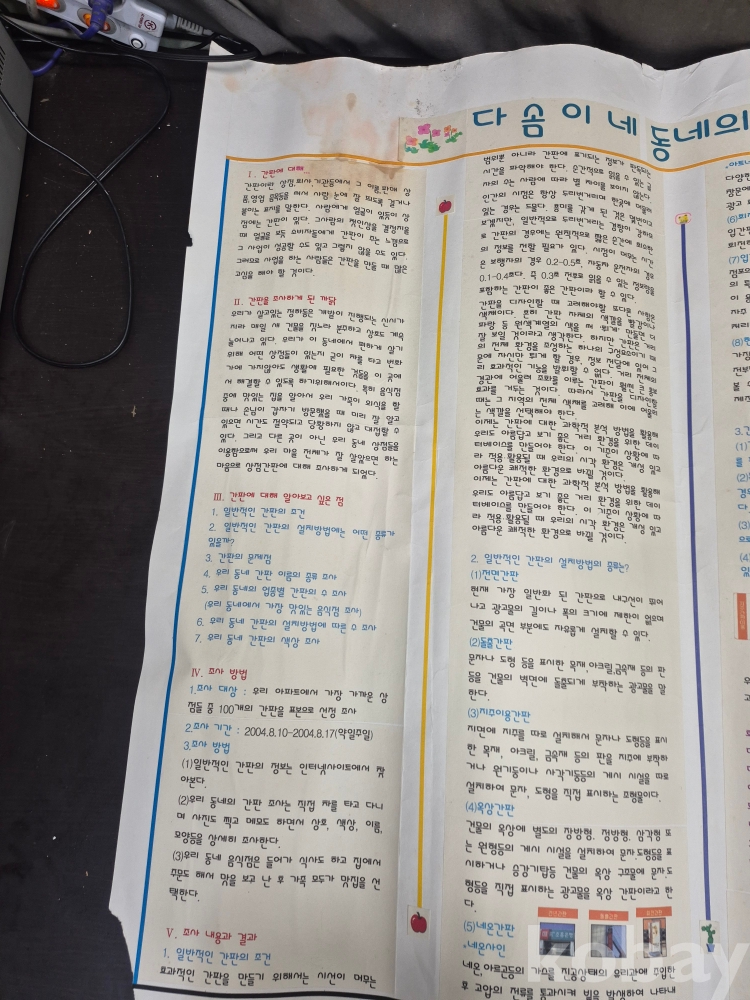 다솜이네 동네의
Ⅰ. 간판에 대해
간판이란 상점,회사,기관등에서 그 이름,판매 상
품,영업 종목등을 써서 사람 눈에 잘 띄도록 걸거나
붙이는 표지를 말한다. 사람에게 얼굴이 있듯이 상
점에는 간판이 있다. 그사람의 첫인상을 결정지을
때 얼굴을 보듯 소비자들에게 간판이 주는 느낌으로
그 사업이 성공할 수도 있고 그렇지 않을 수도 있다.
그러므로 사업을 하는 사람들은 간판을 만들 때 많은
고심을 해야 할 것이다.
Ⅱ. 간판을 조사하게 된 까닭
우리가 살고있는 정하동은 개발이 진행되는 신시가
지라 매일 새 건물을 짓느라 분주하고 상호도 계속
늘어나고 있다. 우리가 이 동네에서 편하게 살기
위해 어떤 상점들이 있는지 굳이 차를 타고 번화
가에 가지않아도 생활에 필요한 것들을 이 곳에
서 해결할 수 있도록 하기위해서이다. 특히 음식점
중에 맛있는 집을 알아서 우리 가족이 외식을 할
때나 손님이 갑자기 방문했을 때 미리 잘 알고
있으면 시간도 절약되고 당황하지 않고 대접할 수
있다. 그리고 다른 곳이 아닌 우리 동네 상점들을
이용함으로써 우리 마을 전체가 잘 살았으면 하는
마음으로 상점간판에 대해 조사하게 되었다.
Ⅲ. 간판에 대해 알아보고 싶은 점
1. 일반적인 간판의 조건
2. 일반적인 간판의 설치방법에는 어떤 종류가
있을까?
3. 간판의 문제점
4. 우리 동네 간판 이름의 종류 조사
5. 우리 동네의 업종별 간판의 수 조사
(우리 동네에서 가장 맛있는 음식점 조사)
6. 우리 동네 간판의 설치방법에 따른 수 조사
7. 우리 동네 간판의 색상 조사
Ⅳ. 조사 방법
1.조사 대상 : 우리 아파트에서 가장 가까운 상
점들 중 100개의 간판을 표본으로 선정 조사
2.조사 기간 : 2004.8.10-2004.8.17(약일주일)
3.조사 방법
(1)일반적인 간판의 정보는 인터넷사이트에서 찾
아본다.
(2)우리 동네의 간판 조사는 직접 차를 타고 다니
며 사진도 찍고 메모도 하면서 상호, 색상, 이름,
모양등을 상세히 조사한다.
(3)우리 동네 음식점은 들어가 식사도 하고 집에서
주문도 해서 맛을 보고 난 후 가족 모두가 맛집을 선
택한다.
Ⅴ. 조사 내용과 결과
1. 일반적인 간판의 조건
효과적인 간판을 만들기 위해서는 시선이 머무는
범위뿐 아니라 간판에 표기되는 정보가 판독되는
시간을 파악해야 한다. 순간적으로 읽을 수 있는 글
자의 수는 사람에 따라 별 차이를 보이지 않는다.
인간의 시점은 항상 두리번거리며 한곳에 머물러
있는 경우는 드물다. 흥미를 갖게 된 것은 몇번이고
보겠지만, 일반적으로 두리번거리는 경향이 강하므
로 간판의 경우에는 원칙적으로 짧은 순간에 최소한
의 정보를 전할 필요가 있다. 시점이 머무는 시간
은 보행자의 경우 0.2-0.5초, 자동차 운전자의 경우
0.1-0.4초다. 즉 0.3초 전후로 읽을 수 있는 정보량을
포함하는 간판이 좋은 간판이라 할 수 있다.
간판을 디자인할 때 고려해야할 또다른 사항은
색채이다. 흔히 간판 자체의 색깔을 빨강이나
파랑 등 원색계열의 색을 써 '튀게' 만들면 더
잘 보일 것이라고 생각한다. 하지만 간판은 거리
의 전체 환경을 조성하는 하나의 구성요소이기 때
문에 자신만 튀게 할 경우, 정보 전달에 있어 그
리 효과적인 기능을 발휘할 수 없다. 거리 전체의
경관에 어울려 조화를 이루는 간판이 훨씬 큰 홍보
효과를 거두는 것이다. 따라서 간판을 디자인할
때는 그 지역의 전체 색채를 고려해 이에 어울리
는 색깔을 선택해야 한다.
이제는 간판에 대한 과학적 분석 방법을 활용해
우리도 아름답고 보기 좋은 거리 환경을 위한 데이
터베이스를 만들어야 한다. 이 기준이 상황에 따
라 적용 활용될 때 우리의 시각 환경은 개성 있고
아름다운 쾌적한 환경으로 바뀔 것이다.
이제는 간판에 대한 과학적 분석 방법을 활용해
우리도 아름답고 보기 좋은 거리 환경을 위한 데이
터베이스를 만들어야 한다. 이 기준이 상황에 따
라 적용 활용될 때 우리의 시각 환경은 개성 있고
아름다운 쾌적한 환경으로 바뀔 것이다.
2. 일반적인 간판의 설치방법의 종류는?
(1)전면간판
현재 가장 일반화 된 간판으로 내구성이 뛰어
나고 광고물의 길이나 폭의 크기에 제한이 없으며
건물의 곡면 부분에도 자유롭게 설치할 수 있다.
(2)돌출간판
문자나 도형 등을 표시한 목재,아크릴,금속재 등의 판
등을 건물의 벽면에 돌출되게 부착하는 광고물을 말
한다.
(3)지주이용간판
지면에 지주를 따로 설치해서 문자나 도형등을 표시
한 목재, 아크릴, 금속재 등의 판을 지주에 부착하
거나 원기둥이나 사각기둥등의 게시 시설을 따로
설치하여 문자, 도형을 직접 표시하는 조형물이다.
(4)옥상간판
건물의 옥상에 별도의 장방형, 정방형, 삼각형 또
는 원형등의 게시 시설을 설치하여 문자·도형등을 표
시하거나 승강기탑등 건물의 옥상 구조물에 문자·도
형등을 직접 표시하는 광고물을 옥상 간판이라고 한
다.
(5)네온간판
*네온사인
네온,아르곤등의 가스를 진공상태의 유리관에 주입한
후 고압의 전류를 통과시켜 빛을 발생하여 나타내
다양한
광고
(6)
(7)
(8)
3.
(1)
(2)
(3)
(4)
kobay